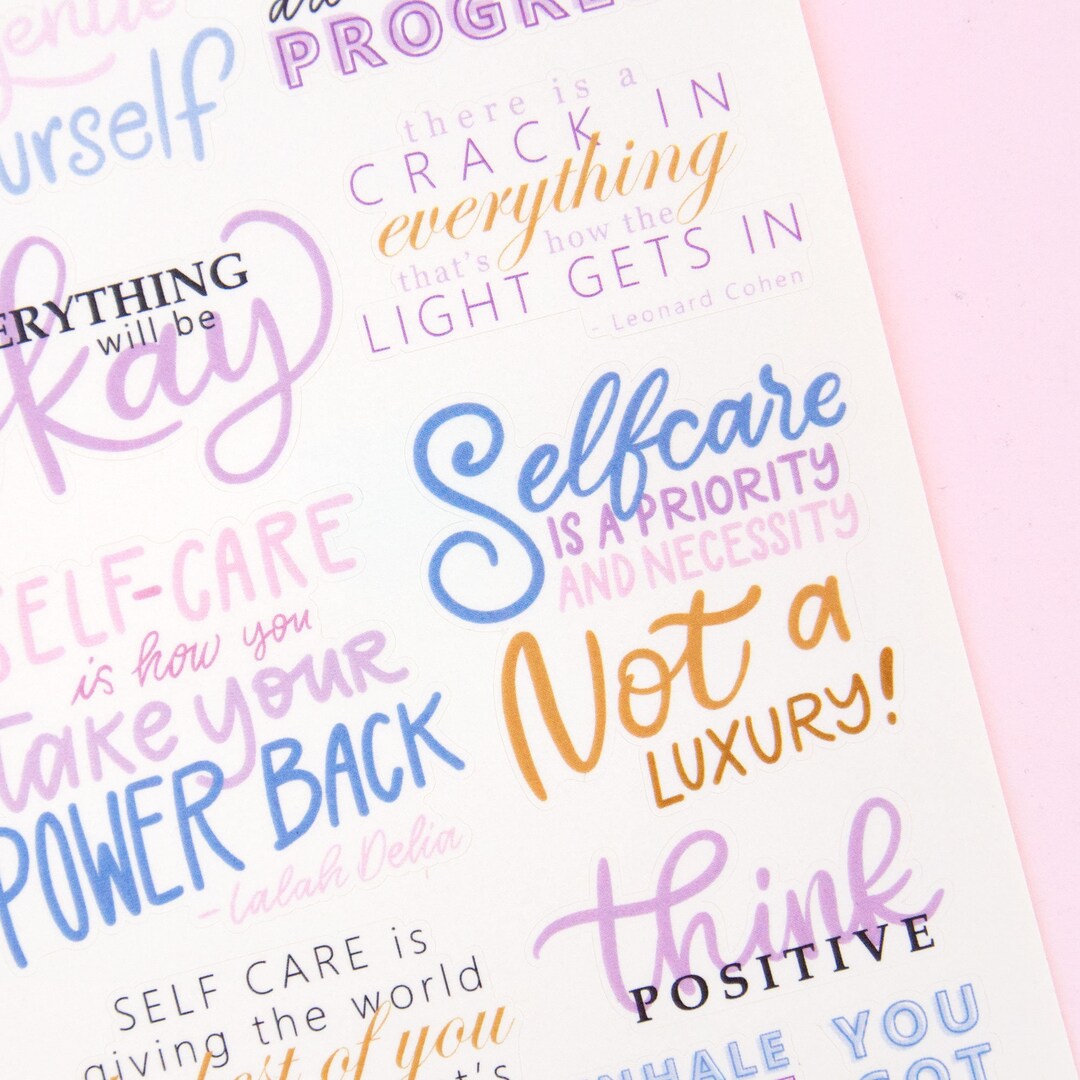 PROGRE
urself
there is a
CRACK IN
everything
that's how the
LIGHT GETS IN
- Leonard Cohen
ERYTHING
will be
kay
Selfcare
IS A PRIORITY
AND NECESSITY
Not a
LUXURY!
SELF-CARE
is how you
Take your
POWER BACK
- Lalah Delia
think
POSITIVE
SELF CARE is
giving the world
best of you
t's
NHALE
YOU
GOT